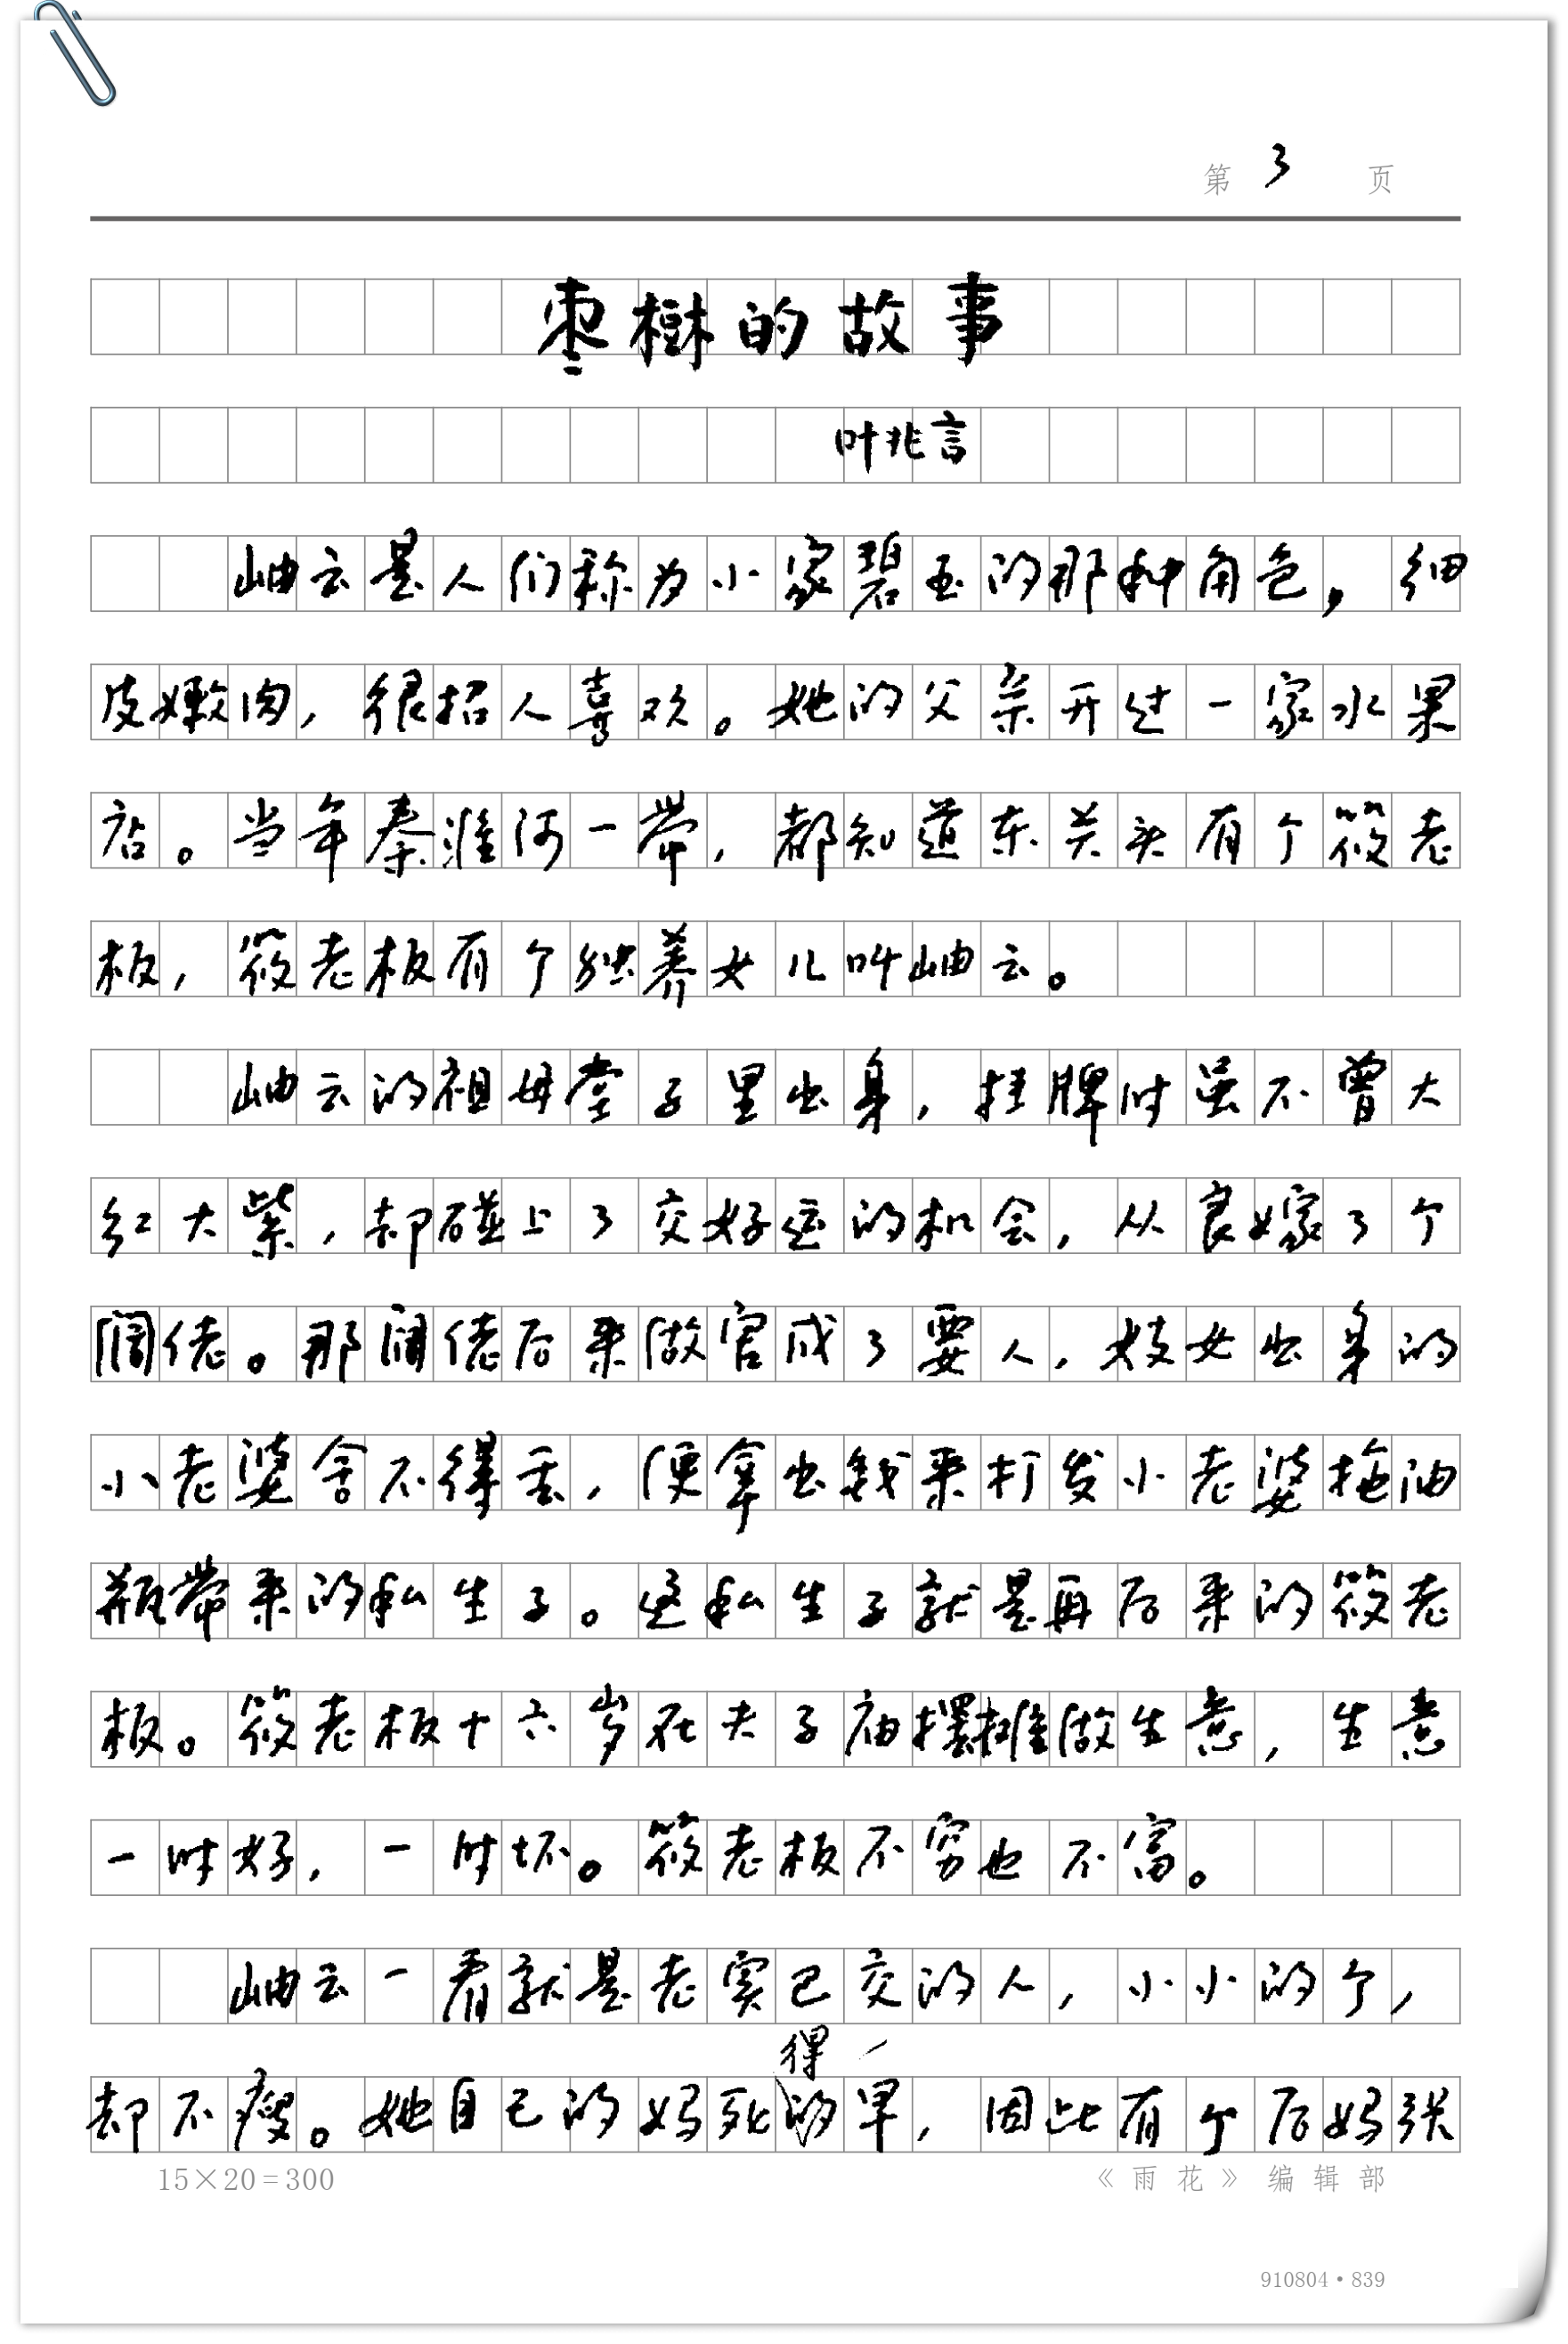 第 3 页
枣樹的故事
叶兆言
岫云是人们称为小家碧玉的那种角色，细
皮嫩肉，很招人喜欢。她的父亲开过一家水果
店。当年秦淮河一带，都知道东关头有个筱老
板，筱老板有个独养女儿叫岫云。
岫云的祖母堂子里出身，挂牌时虽不曾大
红大紫，却碰上了交好运的机会，从良嫁了个
阔佬。那阔佬后来做官成了要人，妓女出身的
小老婆舍不得丢，便拿出钱来打发小老婆拖油
瓶带来的私生子。这私生子就是再后来的筱老
板。筱老板十六岁在夫子庙摆摊做生意，生意
一时好，一时坏。筱老板不穷也不富。
岫云一看就是老实巴交的人，小小的个，
得
却不瘦。她自己的妈死的早，因此有个后妈张
15×20=300 《雨花》编辑部
910804·839